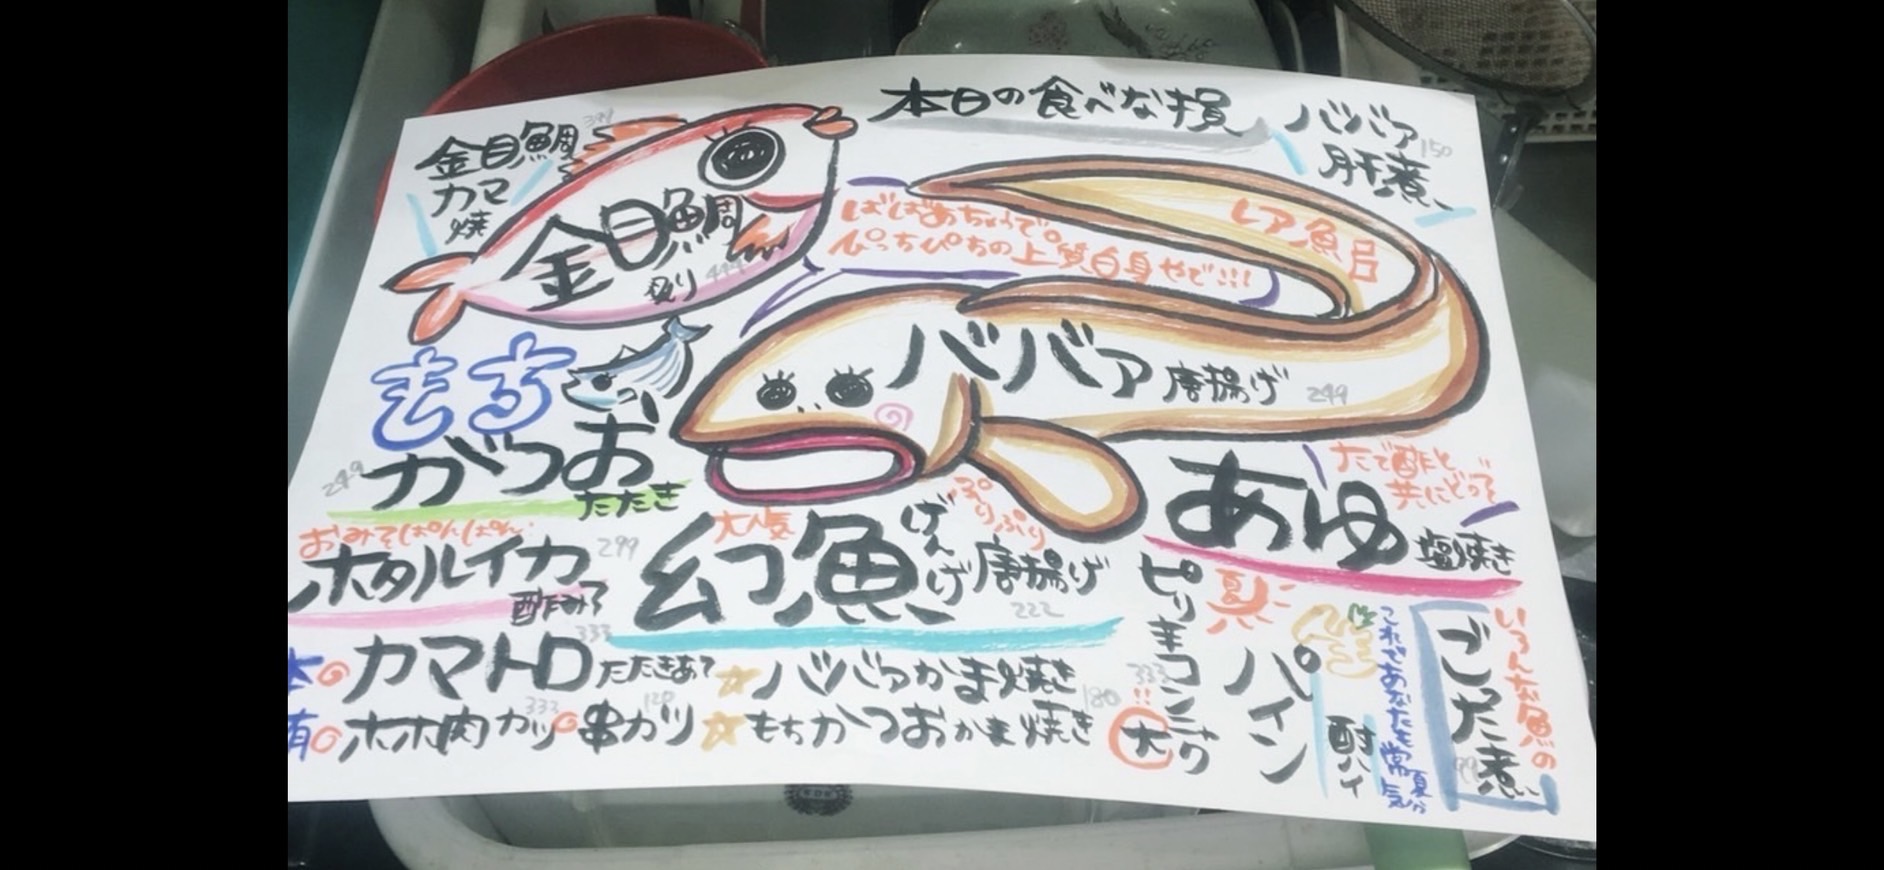 本日の食べな損
金目鯛
カマ
焼
399
金目鯛
炙り
444
ばばあちゃうで
ぴっちぴちの上質白身やで!!!
レア魚
ババア
肝煮
150
ババア唐揚げ
249
もち
がつお
たたき
249
おみそぱんぱん
ホタルイカ
酢みそ
299
大人気
幻魚
げんげ
唐揚げ
ぷりぷり
222
あゆ
塩焼き
たで酢と
共にどうぞ
カマトロ
たたきあて
333
☆ババアかま焼き
ホホ肉カツ
333
串カツ
120
☆もちかつおかま焼き
180
ピリキュウコンニャク
333
大
夏
パイン
酎ハイ
これであなたも常夏気分
いろんな魚の
ごった煮
99